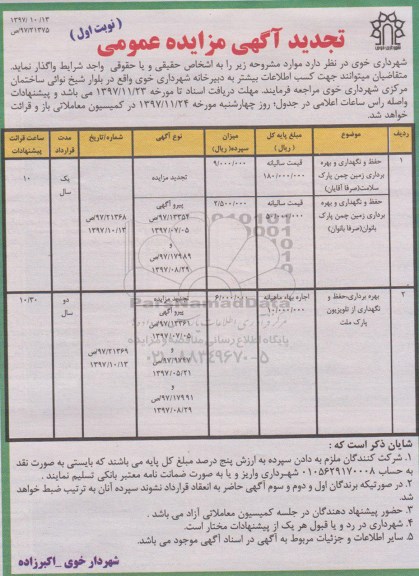 ۱۳۹۷/۱۰/۱۳
۹۷/۲۱۳۷۵ص
(نوبت اول)
تجدید آگهی مزایده عمومی
شهرداری خوی در نظر دارد موارد مشروحه زیر را به اشخاص حقیقی و یا حقوقی واجد شرایط واگذار نماید.
متقاضیان میتوانند جهت کسب اطلاعات بیشتر به دبیرخانه شهرداری خوی واقع در بلوار شیخ نوائی ساختمان
مرکزی شهرداری خوی مراجعه فرمایند. مهلت دریافت اسناد تا مورخه ۱۳۹۷/۱۱/۲۳ می باشد و پیشنهادات
واصله راس ساعات اعلامی در جدول؛ روز چهارشنبه مورخه ۱۳۹۷/۱۱/۲۴ در کمیسیون معاملاتی باز و قرائت
خواهد شد.
ردیف
موضوع
مبلغ پایه کل
( ریال )
میزان
سپرده( ریال)
نوع آگهی
شماره/تاریخ
مدت
قرارداد
ساعت قرائت
پیشنهادات
۱
حفظ و نگهداری و بهره
برداری زمین چمن پارک
سلامت(صرفا آقایان)
قیمت سالیانه
۱۸۰/۰۰۰/۰۰۰
۹/۰۰۰/۰۰۰
تجدید مزایده
یک
سال
۱۰
حفظ و نگهداری و بهره
برداری زمین چمن پارک
بانوان(صرفا بانوان)
قیمت سالیانه
۵۰/۰۰۰/۰۰۰
۲/۵۰۰/۰۰۰
پیرو آگهی
۹۷/۱۳۳۵۴ص
۱۳۹۷/۰۷/۰۵
و
۹۷/۱۷۹۸۹ص
۱۳۹۷/۰۸/۲۹
۹۷/۲۱۳۶۸ص
۱۳۹۷/۱۰/۱۳
۲
بهره برداری،حفظ و
نگهداری از تلویزیون
پارک ملت
اجاره بهاء ماهیانه
۱۰/۰۰۰/۰۰۰
۶/۰۰۰/۰۰۰
تجدید مزایده
پیرو آگهی
۱۳۹۷/۰۷/۰۵
و
۹۷/۹۷۹۷ص
۱۳۹۷/۰۵/۲۱
و
۹۷/۱۷۹۹۱ص
۱۳۹۷/۰۸/۲۹
۹۷/۲۱۳۶۹ص
۱۳۹۷/۱۰/۱۳
دو
سال
۱۰/۳۰
ParsNamadData
پایگاه اطلاع رسانی مناقصه و مزایده
۰۲۱-۸۸۳۴۹۶۷۰-۵
شایان ذکر است که :
۱. شرکت کنندگان ملزم به دادن سپرده به ارزش پنج درصد مبلغ کل پایه می باشند که بایستی به صورت نقد
به حساب ۰۱۰۵۶۲۹۱۷۰۰۰۸ شهرداری واریز و یا به صورت ضمانت نامه معتبر بانکی تسلیم نمایند .
۲. در صورتیکه برندگان اول و دوم و سوم آگهی حاضر به انعقاد قرارداد نشوند سپرده آنان به ترتیب ضبط خواهد
شد.
۳. حضور پیشنهاد دهندگان در جلسه کمیسیون معاملاتی آزاد می باشد .
۴. شهرداری در رد و یا قبول هر یک از پیشنهادات مختار است.
۵. سایر اطلاعات و جزئیات مربوط به آگهی در اسناد آگهی موجود می باشد.
شهردار خوی _اکبرزاده